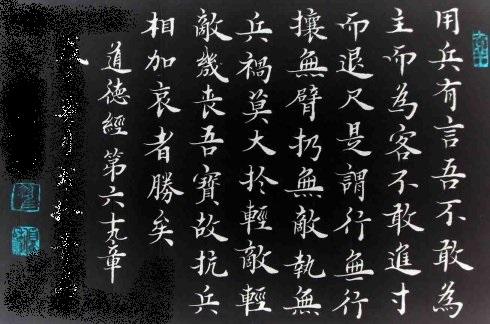 用兵有言吾不敢為
主而為客不敢進寸
而退尺是謂行無行
攘無臂扔無敵執無
兵禍莫大扵輕敵輕
敵幾喪吾寶故抗兵
相加哀者勝矣
道德經第六十九章